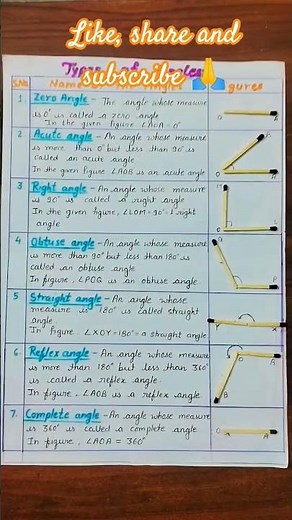 Like, share and
subscribe 🙏
Types of Angles
S.No Name figures
1. Zero Angle - The angle whose measure
is 0° is called a zero angle
In the given figure ∠AOA = 0°
O A
2 Acute angle - An angle whose measure
is more than 0° but less than 90° is
called an acute angle
In the given figure ∠AOB is an acute angle
B
O A
3 Right angle - An angle whose measure
is 90° is called a right angle
In the given figure, ∠LOM = 90° right
angle
M
O L
4 Obtuse angle - An angle whose measure
is more than 90° but less than 180° is
called an obtuse angle
In figure, ∠POQ is an obtuse angle
Q
O P
5 Straight angle - An angle whose
measure is 180° is called straight
angle
In figure. ∠XOY = 180° = a straight angle
Y O X
6. Reflex angle - An angle whose measure
is more than 180° but less than 360°
is called a reflex angle.
In figure, ∠AOB is a reflex angle
O A
B
7. Complete angle - An angle whose measure
is 360° is called a complete angle
In figure, ∠AOA = 360°
O A